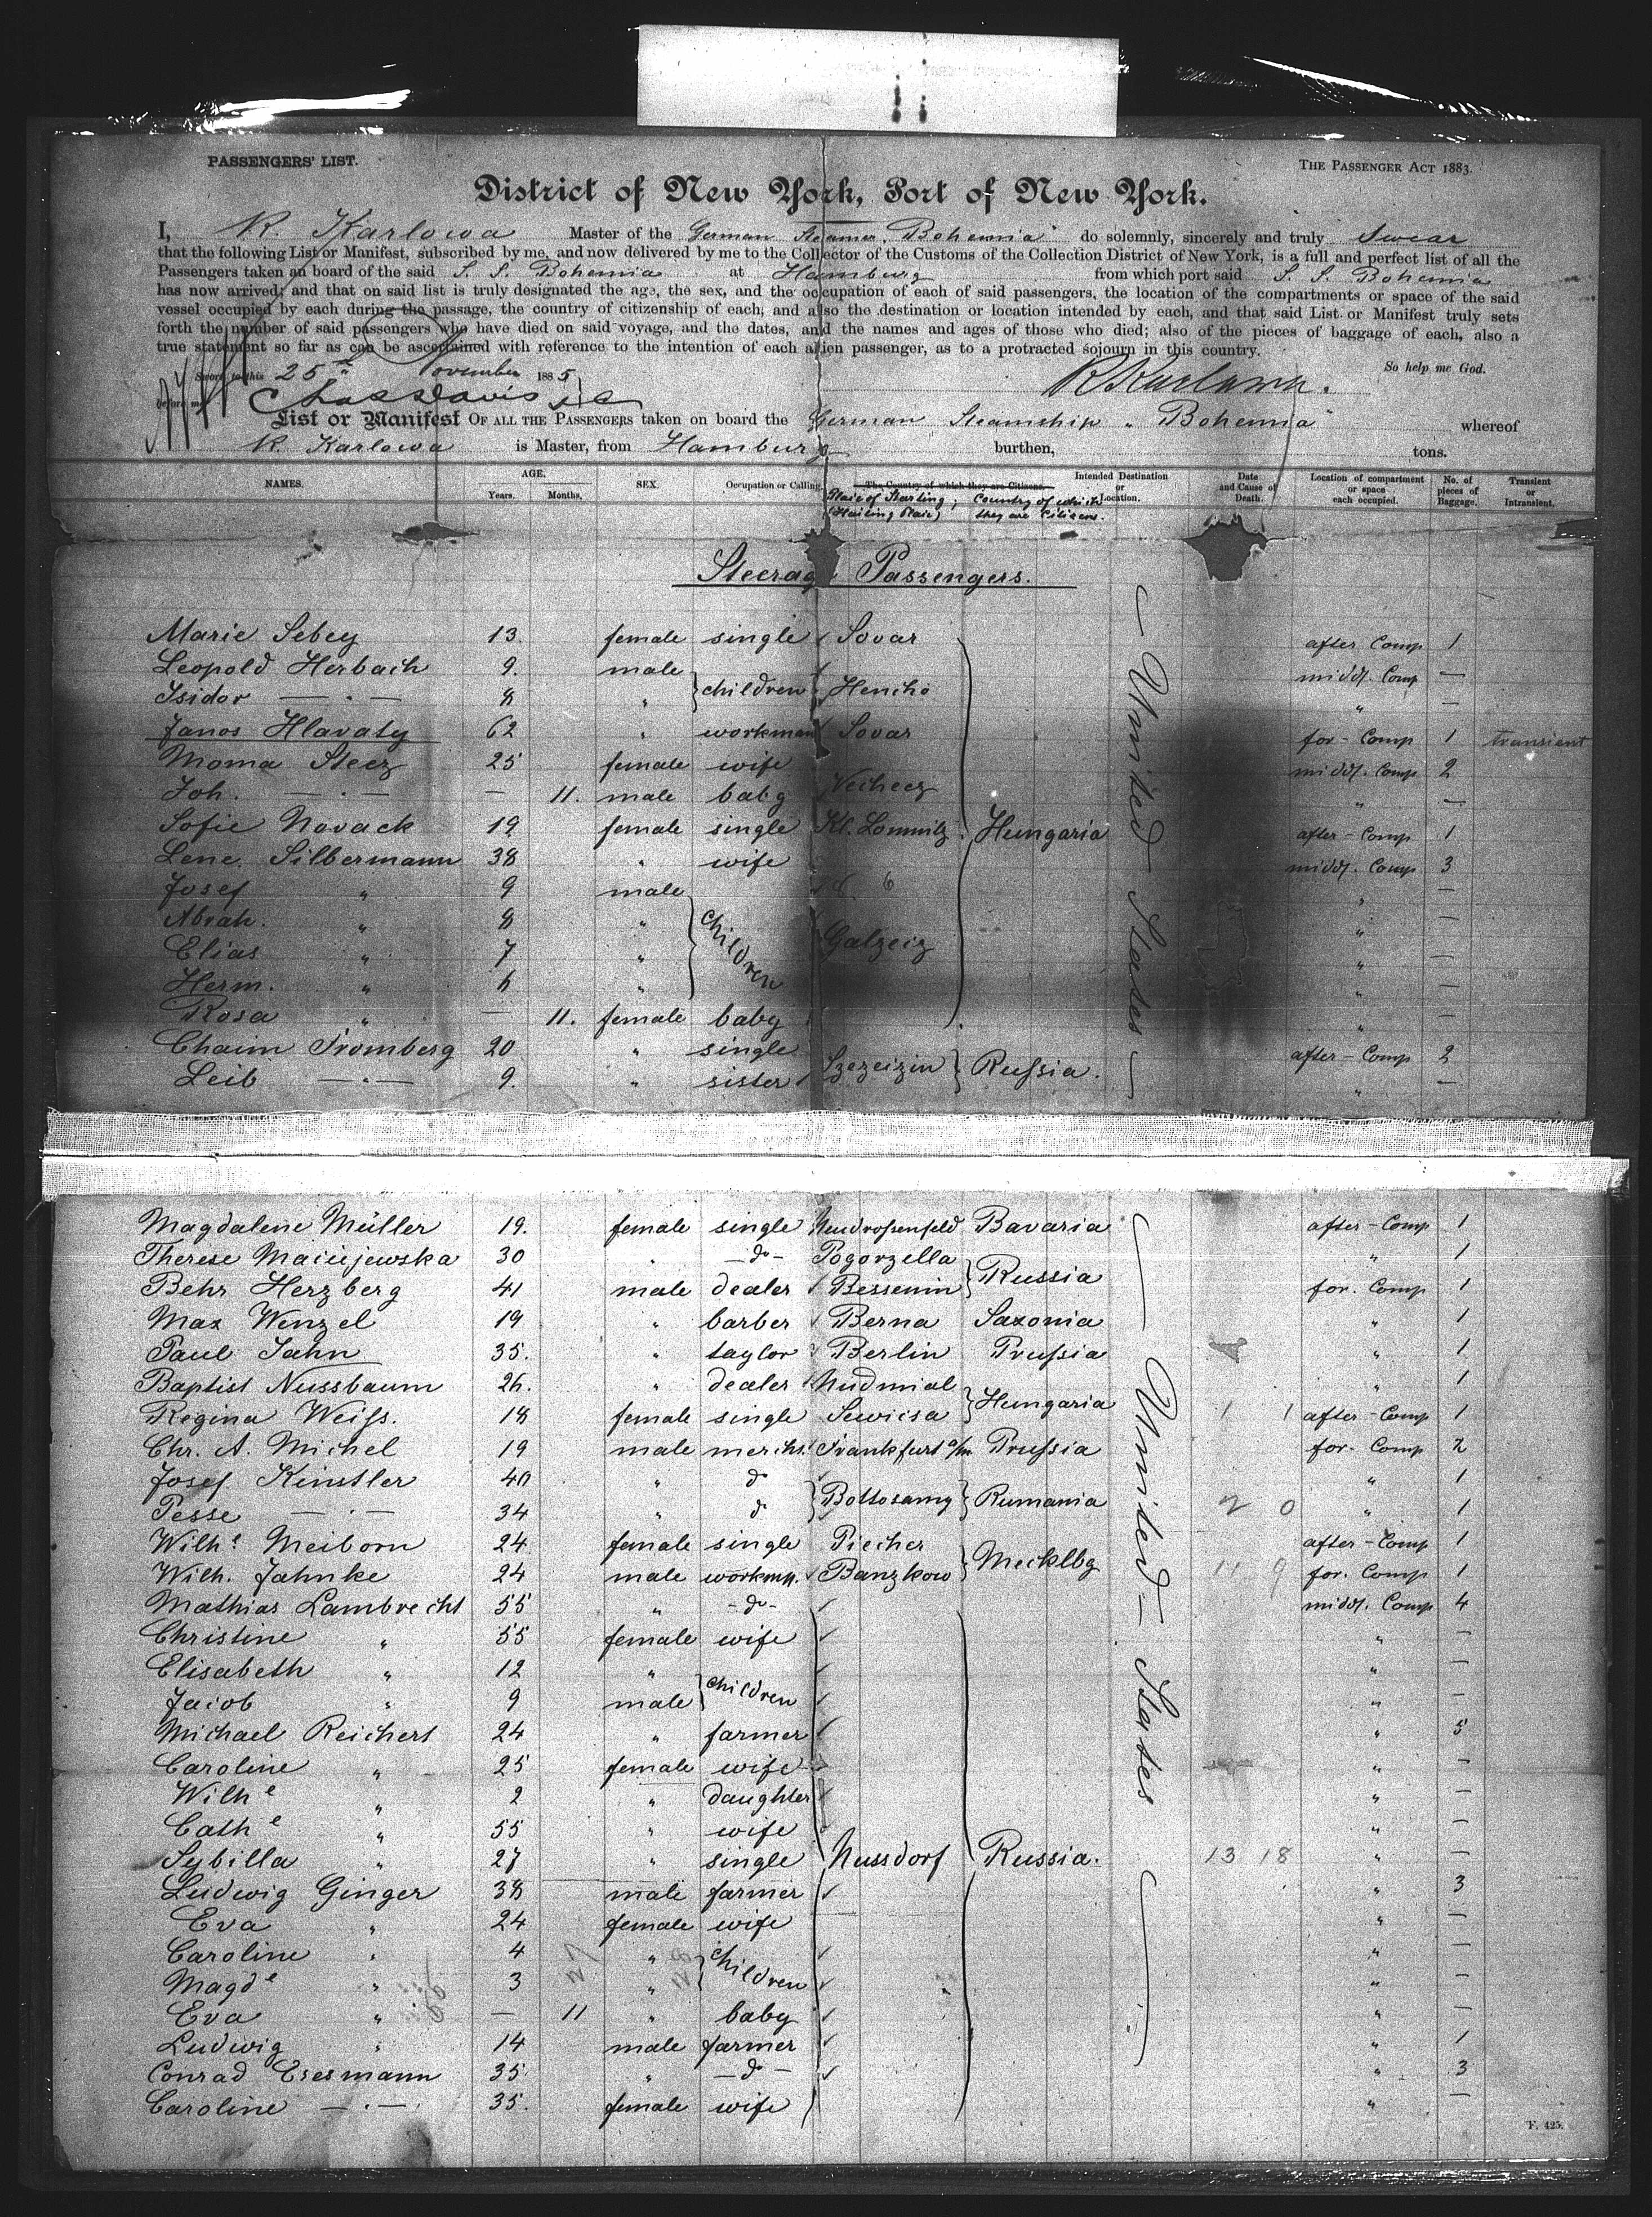 PASSENGERS' LIST.
THE PASSENGER ACT 1883.
District of New York, Port of New York.
I, R. Karlowa Master of the German Steamer "Bohemia" do solemnly, sincerely and truly swear
that the following List or Manifest, subscribed by me, and now delivered by me to the Collector of the Customs of the Collection District of New York, is a full and perfect list of all the
Passengers taken an board of the said S. S. Bohemia at Hamburg from which port said S. S. Bohemia
has now arrived; and that on said list is truly designated the age, the sex, and the occupation of each of said passengers, the location of the compartments or space of the said
vessel occupied by each during the passage, the country of citizenship of each, and also the destination or location intended by each, and that said List or Manifest truly sets
forth the number of said passengers who have died on said voyage, and the dates, and the names and ages of those who died; also of the pieces of baggage of each, also a
true statement so far as can be ascertained with reference to the intention of each alien passenger, as to a protracted sojourn in this country.
So help me God.
Sworn to this 25th November 1885
R Karlowa.
before me
Chas Davis
List or Manifest OF ALL THE PASSENGERS taken on board the German Steamship "Bohemia" whereof
R. Karlowa is Master, from Hamburg burthen, tons.
NAMES. AGE. Years. Months. SEX. Occupation or Calling. The Country of which they are Citizens. Intended Destination or Location. Date and Cause of Death. Location of compartment or space each occupied. No. of pieces of Baggage. Transient or Intransient.
Place of Starting; (Hailing Place) Country of which they are Citizens.
Steerage Passengers.
Marie Sebey 13. female single Sovar after Comp 1
Leopold Herbach 9. male middl. Comp —
Isidor —"— 8 " children Hencho " —
Janos Hlavaty 62 " workman Sovar for-Comp 1 transient
Moma Steez 25 female wife middl. Comp 2
Joh. —"— — 11. male baby Vecheez " —
Sofie Novack 19 female single Kl. Lomnitz Hungaria after-Comp 1
Lene Silbermann 38 " wife middl. Comp 3
Josef " 9 male " —
Abrah. " 8 " children Galzeiz " —
Elias " 7 " " —
Herm. " 6 " " —
Rosa " — 11. female baby " —
Chaim Fromberg 20 " single Szezeizin Russia. after-Comp 2
Leib —"— 9. " sister " —
— United States —
Magdalene Müller 19. female single Neudrossenfeld Bavaria after-Comp 1
Therese Maciejewska 30 " —do— Pogorzella " 1
Behr Herzberg 41 male dealer Bessenin Russia for. Comp 1
Max Wenzel 19 " barber Berna Saxonia " 1
Paul Jahn 35. " taylor Berlin Prussia " 1
Baptist Nussbaum 26. " dealer Nudmial " 1
Regina Weiss. 18 female single Sewicsa Hungaria 1 1 after-Comp 1
Chr. A. Michel 19 male merchs. Frankfurt a/m Prussia for. Comp 2
Josef Kinstler 40 " do " 1
Pesse —"— 34 " do Bottosamy Rumania 2 0 " 1
Wilhe Meiborn 24 female single Piecher after-Comp 1
Wilh. Jahnke 24 male workmn. Banzkow Mecklbg 11 9 for. Comp 1
Mathias Lambrecht 55 " —do— middl. Comp 4
Christine " 55 female wife " —
Elisabeth " 12 " children " —
Jacob " 9 male " —
Michael Reichert 24 " farmer " 5
Caroline " 25 female wife " —
Wilhe " 2 " daughter " —
Cathe " 55 " wife " —
Sybilla " 27 " single Nussdorf Russia. 13 18 " —
Ludwig Ginger 38 male farmer " 3
Eva " 24 female wife " —
Caroline " 4 " children " —
Magde " 3 " " —
Eva " — 11 " baby " —
Ludwig " 14 male farmer " 1
Conrad Esesmann 35. " —do— " 3
Caroline —"— 35. female wife " —
— United States —
F. 425.